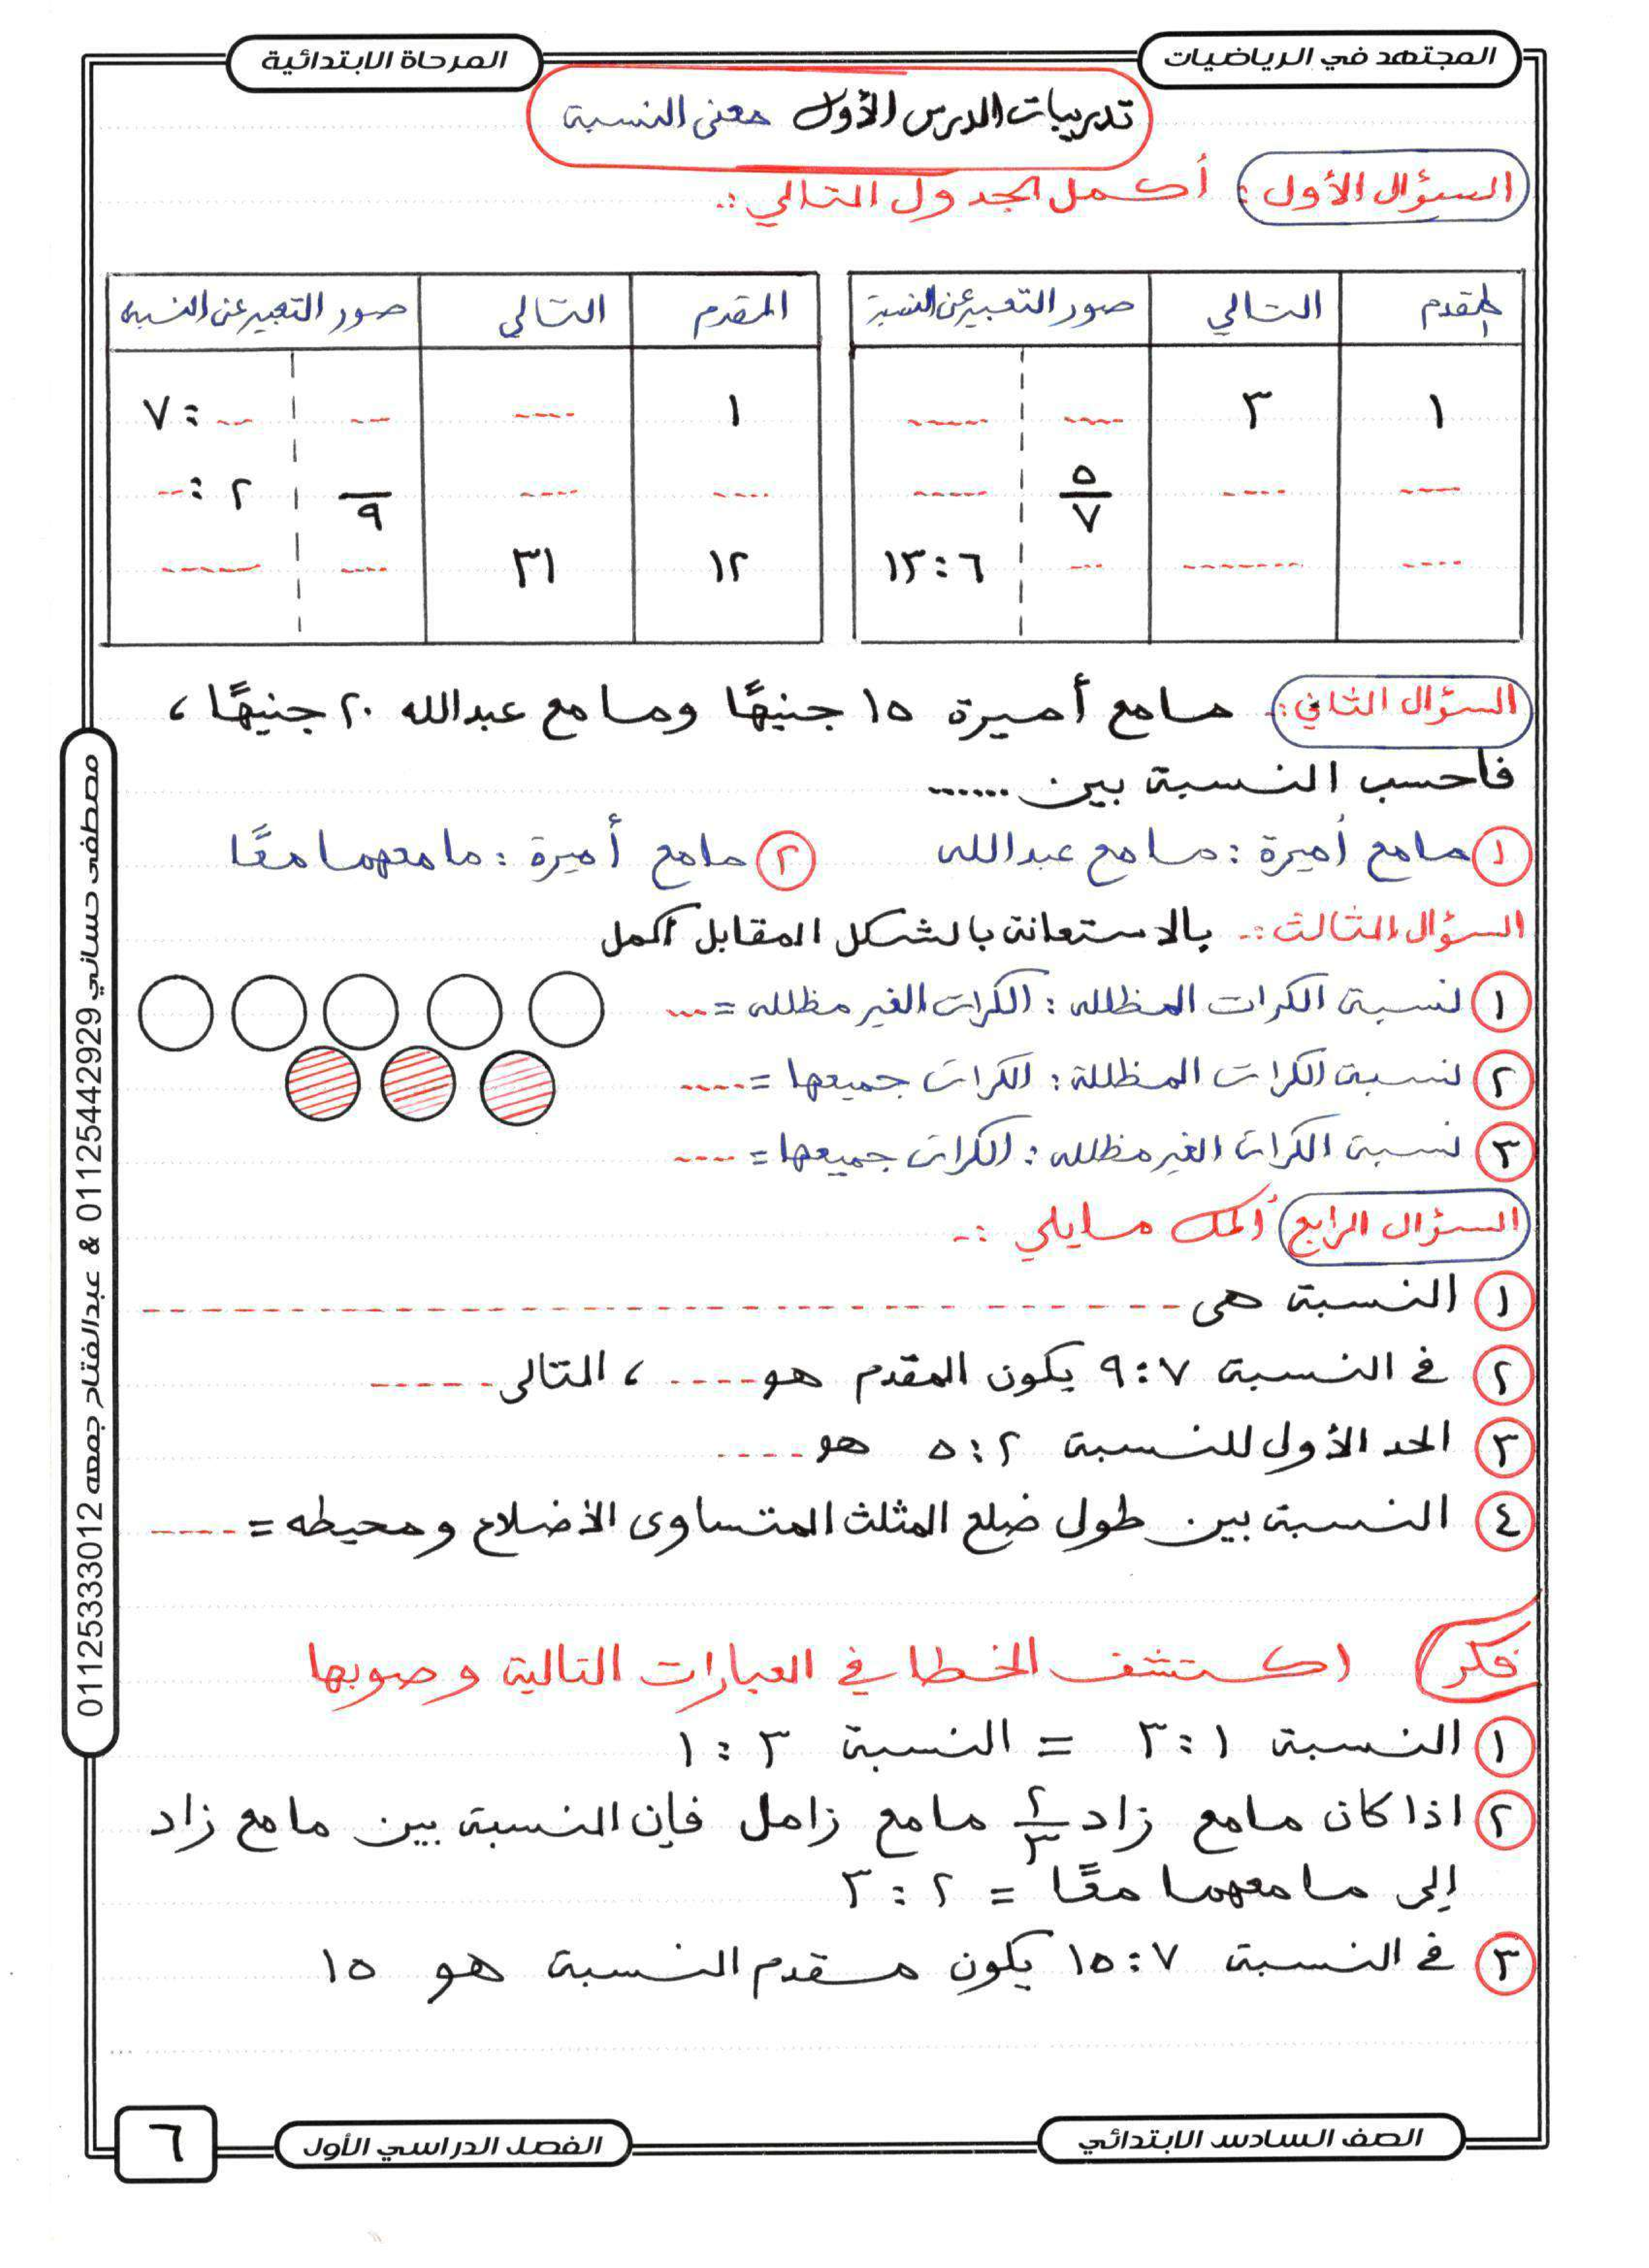 المجتهد في الرياضيات
المرحلة الابتدائية
تدريبات الدرس الأول معنى النسبة
السؤال الأول: أكمل الجدول التالي :-
المقدم التالي صور التعبير عن النسبة
١ ٣ ---- -----
---- ---- ٥/٧ -----
---- ------- --- ٦ : ١٣
المقدم التالي صور التعبير عن النسبة
١ ---- -- -- : ٧
---- ---- /٩ ٢ : --
١٢ ٣١ ---- ------
السؤال الثاني :- مامع أميرة ١٥ جنيهًا ومامع عبدالله ٢٠ جنيهًا ،
فاحسب النسبة بين ......
١ مامع أميرة : مامع عبدالله
٢ مامع أميرة : مامعهما معًا
السؤال الثالث :- بالاستعانة بالشكل المقابل أكمل
١ نسبة الكرات المظلله : الكرات الغير مظلله = ---
٢ نسبة الكرات المظللة : الكرات جميعها = ----
٣ نسبة الكرات الغير مظلله : الكرات جميعها = ----
السؤال الرابع أكمل مايلي :-
١ النسبة هى ------------------------------
٢ في النسبة ٧ : ٩ يكون المقدم هو ---- ، التالى -----
٣ الحد الأول للنسبة ٢ : ٥ هو ----
٤ النسبة بين طول ضلع المثلث المتساوى الأضلاع ومحيطه = ----
فكر اكتشف الخطا في العبارات التالية وصوبها
١ النسبة ١ : ٣ = النسبة ٣ : ١
٢ اذا كان مامع زاد ٢/٣ مامع زامل فإن النسبة بين مامع زاد
إلى مامعهما معًا = ٢ : ٣
٣ في النسبة ٧ : ١٥ يكون مقدم النسبة هو ١٥
مصطفى حساني 01125442929 & عبدالفتاح جمعه 01125333012
الصف السادس الابتدائي
الفصل الدراسي الأول
٦